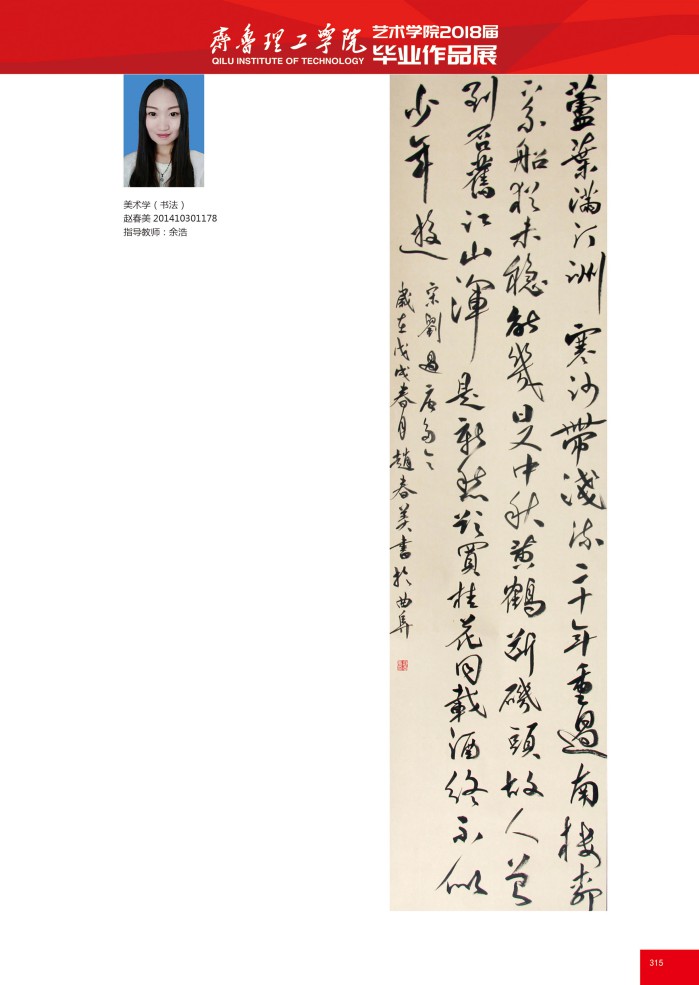 齐鲁理工学院
QILU INSTITUTE OF TECHNOLOGY
艺术学院2018届
毕业作品展
美术学（书法）
赵春美 201410301178
指导教师：余浩
蘆葉滿汀洲寒沙帶淺流二十年重過南楼柳
下系船猶未穩能幾日又中秋黄鶴斷磯頭故人曾
到否舊江山渾是新愁欲買桂花同載酒終不似
少年遊
宋劉過唐多令
歲在戊戌春月趙春美書於曲阜
315